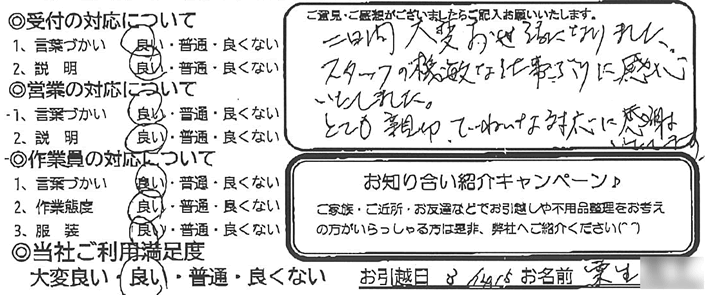 ◎受付の対応について
1、言葉づかい 良い・普通・良くない
2、説 明 良い・普通・良くない
◎営業の対応について
1、言葉づかい 良い・普通・良くない
2、説 明 良い・普通・良くない
◎作業員の対応について
1、言葉づかい 良い・普通・良くない
2、作業態度 良い・普通・良くない
3、服 装 良い・普通・良くない
◎当社ご利用満足度
大変良い・良い・普通・良くない
ご意見・ご感想がございましたらご記入お願いいたします。
二日間大変お世話になりました。
スタッフの機敏な仕事ぶりに感心
いたしました。
とても親切、ていねいな対応に感謝
お知り合い紹介キャンペーン♪
ご家族・ご近所・お友達などでお引越しや不用品整理をお考え
の方がいらっしゃる方は是非、弊社へご紹介ください(^^)
お引越日 お名前 栗生